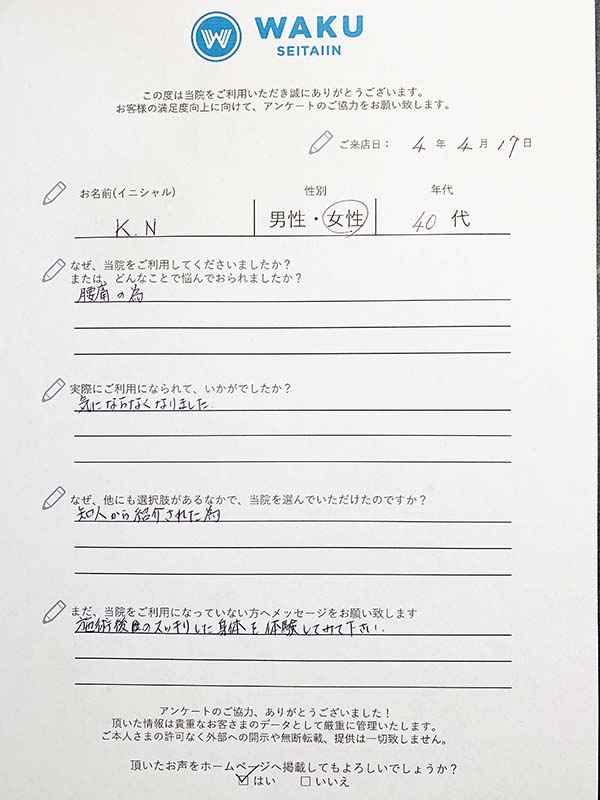 WAKU
SEITAIIN
この度は当院をご利用いただき誠にありがとうございます。
お客様の満足度向上に向けて、アンケートのご協力をお願い致します。
ご来店日： 4 年 4 月 17 日
お名前(イニシャル) 性別 年代
K.N 男性・女性 40 代
なぜ、当院をご利用してくださいましたか？
または、どんなことで悩んでおられましたか？
腰痛の為
実際にご利用になられて、いかがでしたか？
気にならなくなりました.
なぜ、他にも選択肢があるなかで、当院を選んでいただけたのですか？
知人から紹介された為
まだ、当院をご利用になっていない方へメッセージをお願い致します
施術後のスッキリした身体を体験してみて下さい.
アンケートのご協力、ありがとうございました！
頂いた情報は貴重なお客さまのデータとして厳重に管理いたします。
ご本人さまの許可なく外部への開示や無断転載、提供は一切致しません。
頂いたお声をホームページへ掲載してもよろしいでしょうか？
はい いいえ